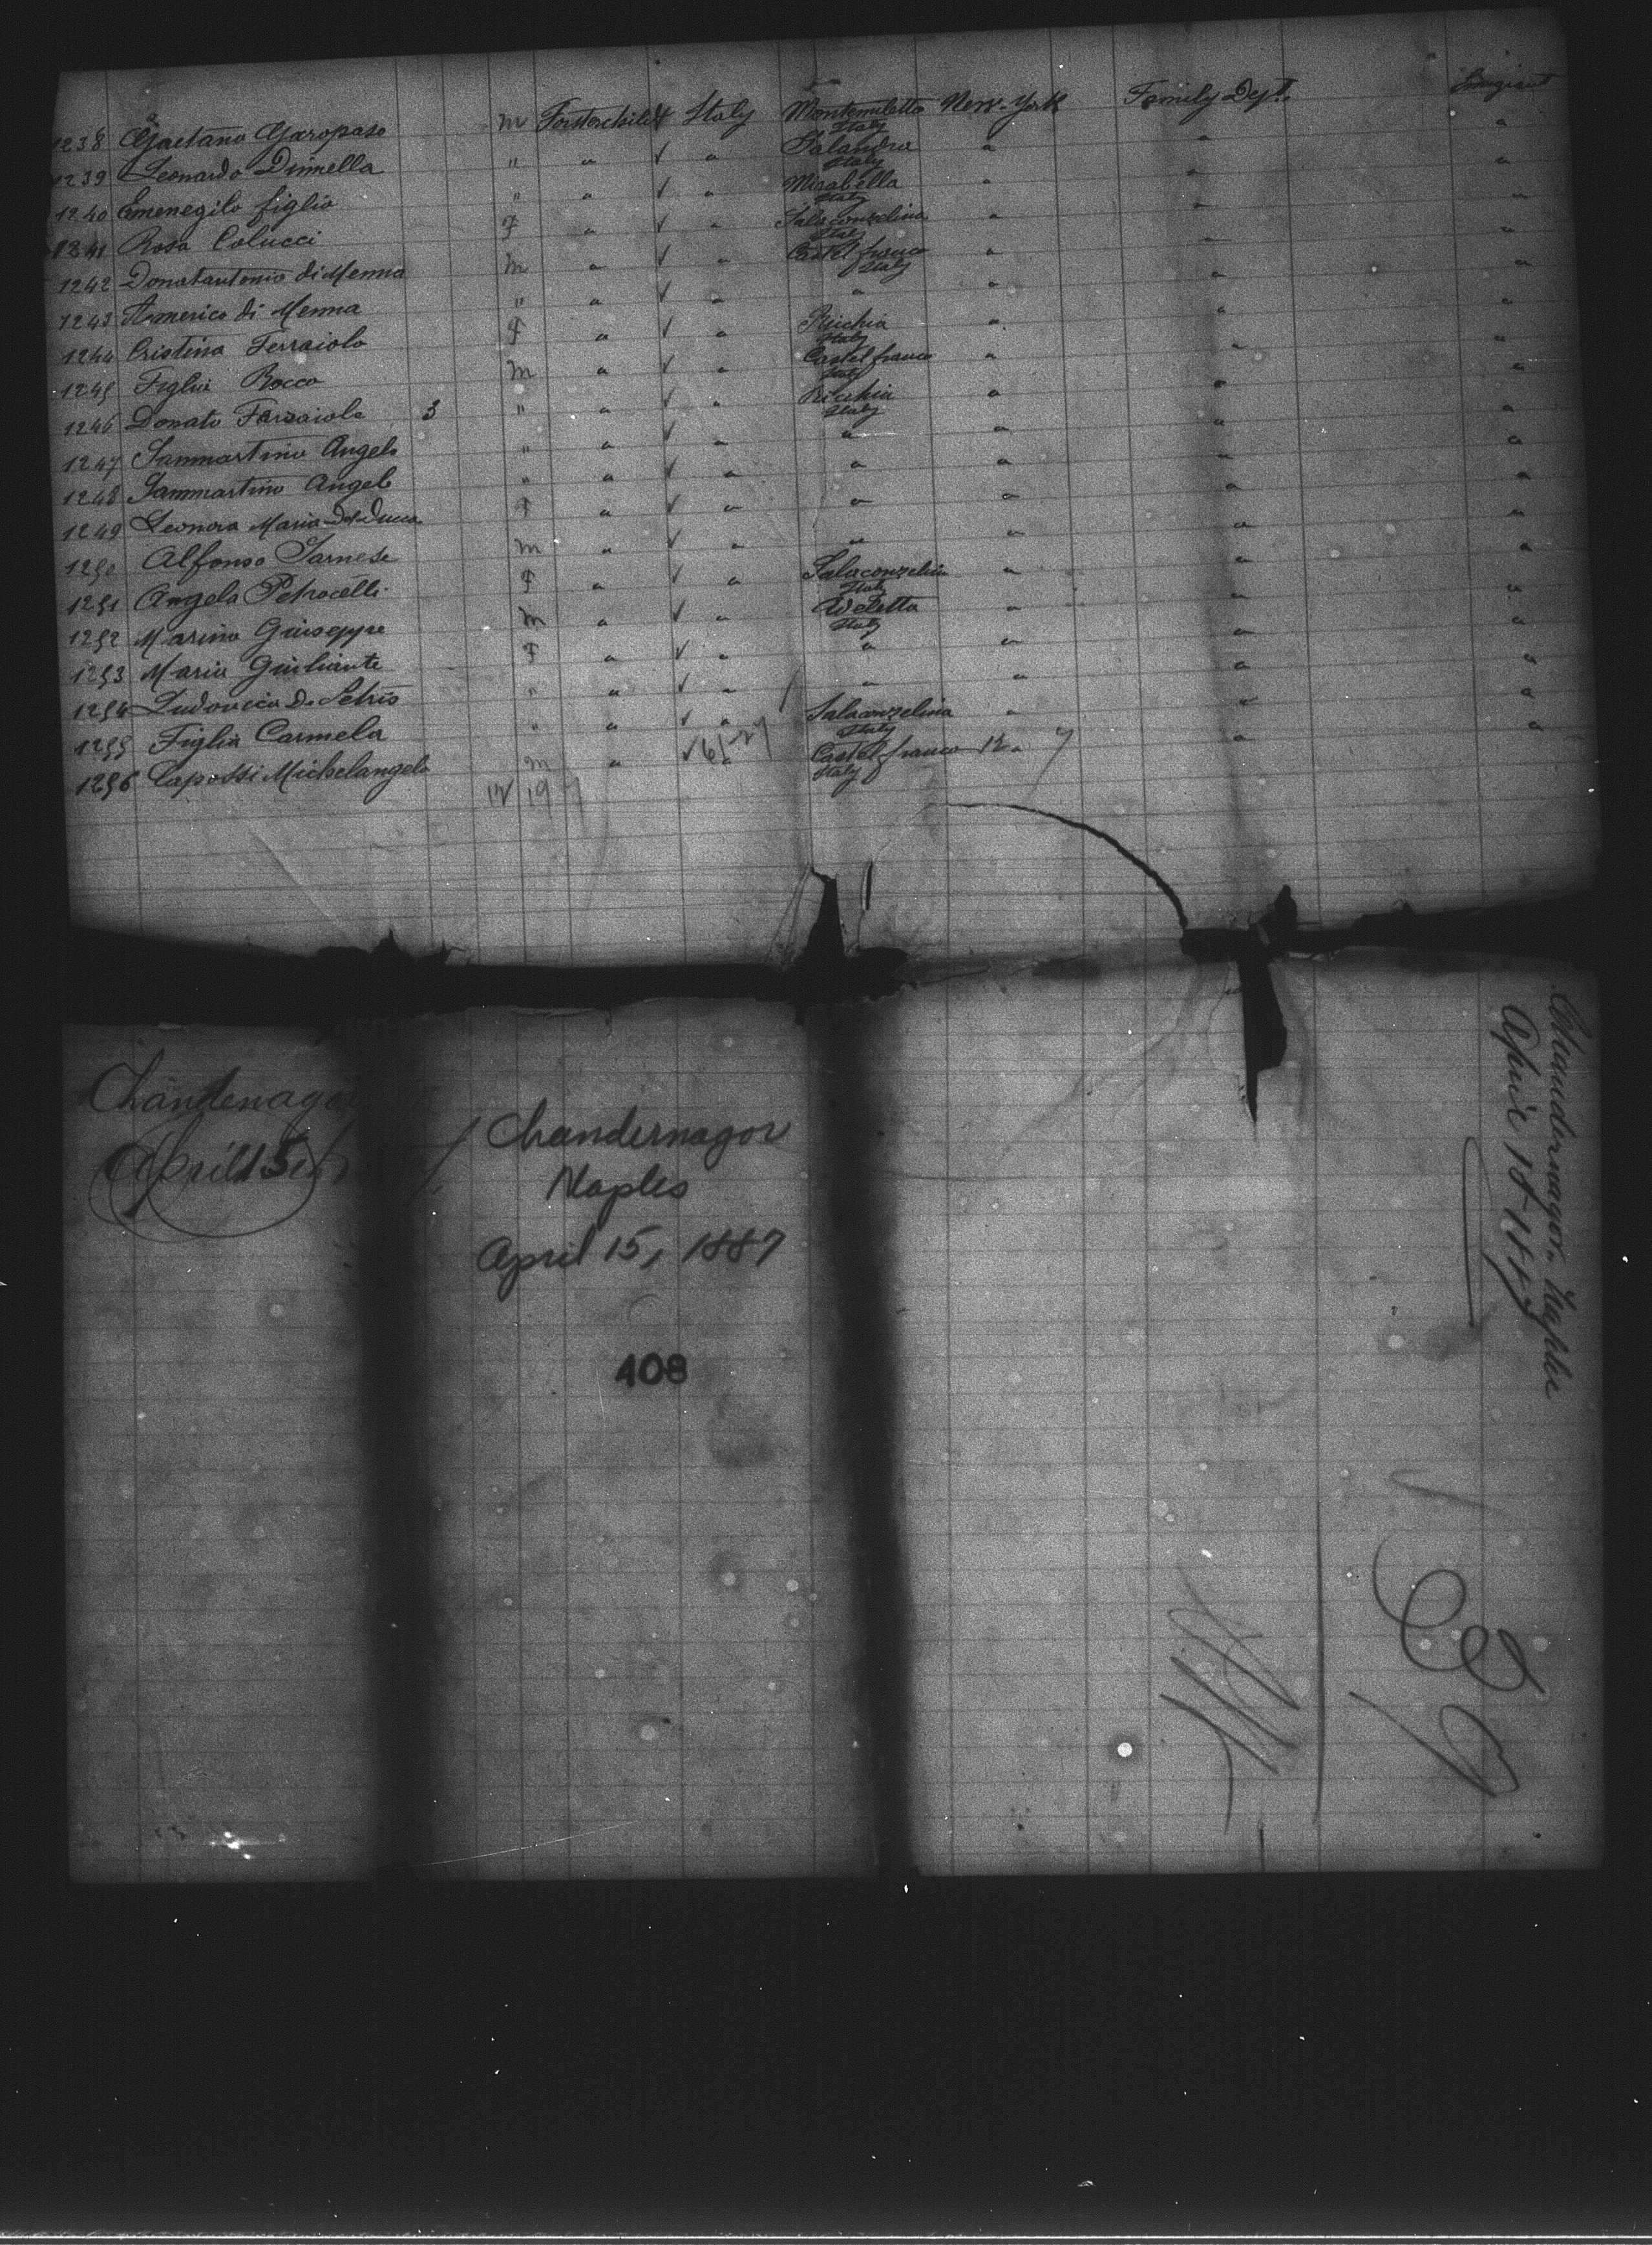 1238 Gaetano Garopaso m Forsterchild Italy Montemiletto Italy New-York Family Dept. Emigrant
1239 Leonardo Dimella " " ✓ " Salandra Italy " " "
1240 Emenegilo figlio " " ✓ " Mirabella Italy " " "
1241 Rosa Colucci F " ✓ " Salaconzelina Italy " " "
1242 Donatantonio di Menna m " ✓ " Castelfranco Italy " " "
1243 Americo di Menna " " ✓ " " " " "
1244 Cristina Ferraiolo F " ✓ " Ricchia Italy " " "
1245 Figlui Rocco m " ✓ " Castelfranco Italy " " "
1246 Donato Farraiolo 3 " " ✓ " Ricchia Italy " " "
1247 Sammartino Angelo " " ✓ " " " " "
1248 Sammartino Angelo " " ✓ " " " " "
1249 Leonora Maria Del Ducca F " ✓ " " " " "
1250 Alfonso Iarnese m " ✓ " " " " "
1251 Angela Petrocelli F " ✓ " Salaconzelina Italy " " "
1252 Marino Guiseppe m " ✓ " Italy " " "
1253 Maria Giuliante F " ✓ " " " " "
1254 Ludovica D. Petris " " ✓ " " " " "
1255 Figlia Carmela " " ✓ " Salaconzelina Italy " " "
1256 Capossi Michelangelo m " ✓ " Castelfranco Italy " " "
Chandenagor
April 15,
Chandernagor
Naples
April 15, 1887
408
Chandernagor. Naples
April 18-1887